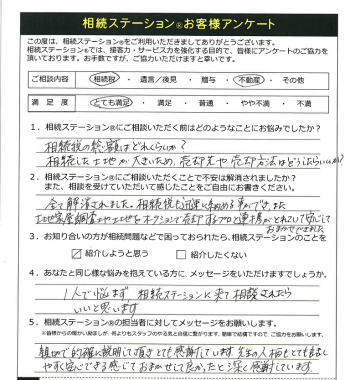 相続ステーション®お客様アンケート
この度は、相続ステーション®をご利用いただきましてありがとうございます。
相続ステーション®では、接客力・サービス力を強化する目的で、皆様にアンケートのご協力を
頂いております。お手数ですが、ご協力いただけますと幸いです。
ご相談内容 相続税 ・ 遺言／後見 ・ 贈与 ・ 不動産 ・ その他
満 足 度 とても満足 ・ 満足 ・ 普通 ・ やや不満 ・ 不満
1．相続ステーション®にご相談いただく前はどのようなことにお悩みでしたか？
相続税の総額はどれくらいか？
相続した土地が大きいため、売却先や売却方法はどうしたらいいか？
2．相続ステーション®にご相談いただくことで不安は解消されましたか？
また、相談を受けていただいて感じたことをご自由にお書きください。
全て解消されました。相続税も迅速に納める事ができ、また
土地家屋調査や土地をオークションで売却するプロと連携がとれていて安心して
おまかせできました
3．お知り合いの方が相続問題などで困っておられたら、相続ステーション®のことを
☑ 紹介しようと思う □ 紹介したくない
4．あなたと同じ様な悩みを抱えている方に、メッセージをいただけますでしょうか。
1人で悩まず 相続ステーションに来て相談されたら
いいと思います
5．相続ステーション®の担当者に対してメッセージをお願いします。
※皆様からの暖かい励ましが、何よりもスタッフのやる気と自信に繋がります。簡単で結構ですので、ご協力をお願いします。
親切で的確に説明して頂きとても感謝しています 先生の人柄もとても話し
やすく安心できる感じでおまかせして良かったと深く感謝しています